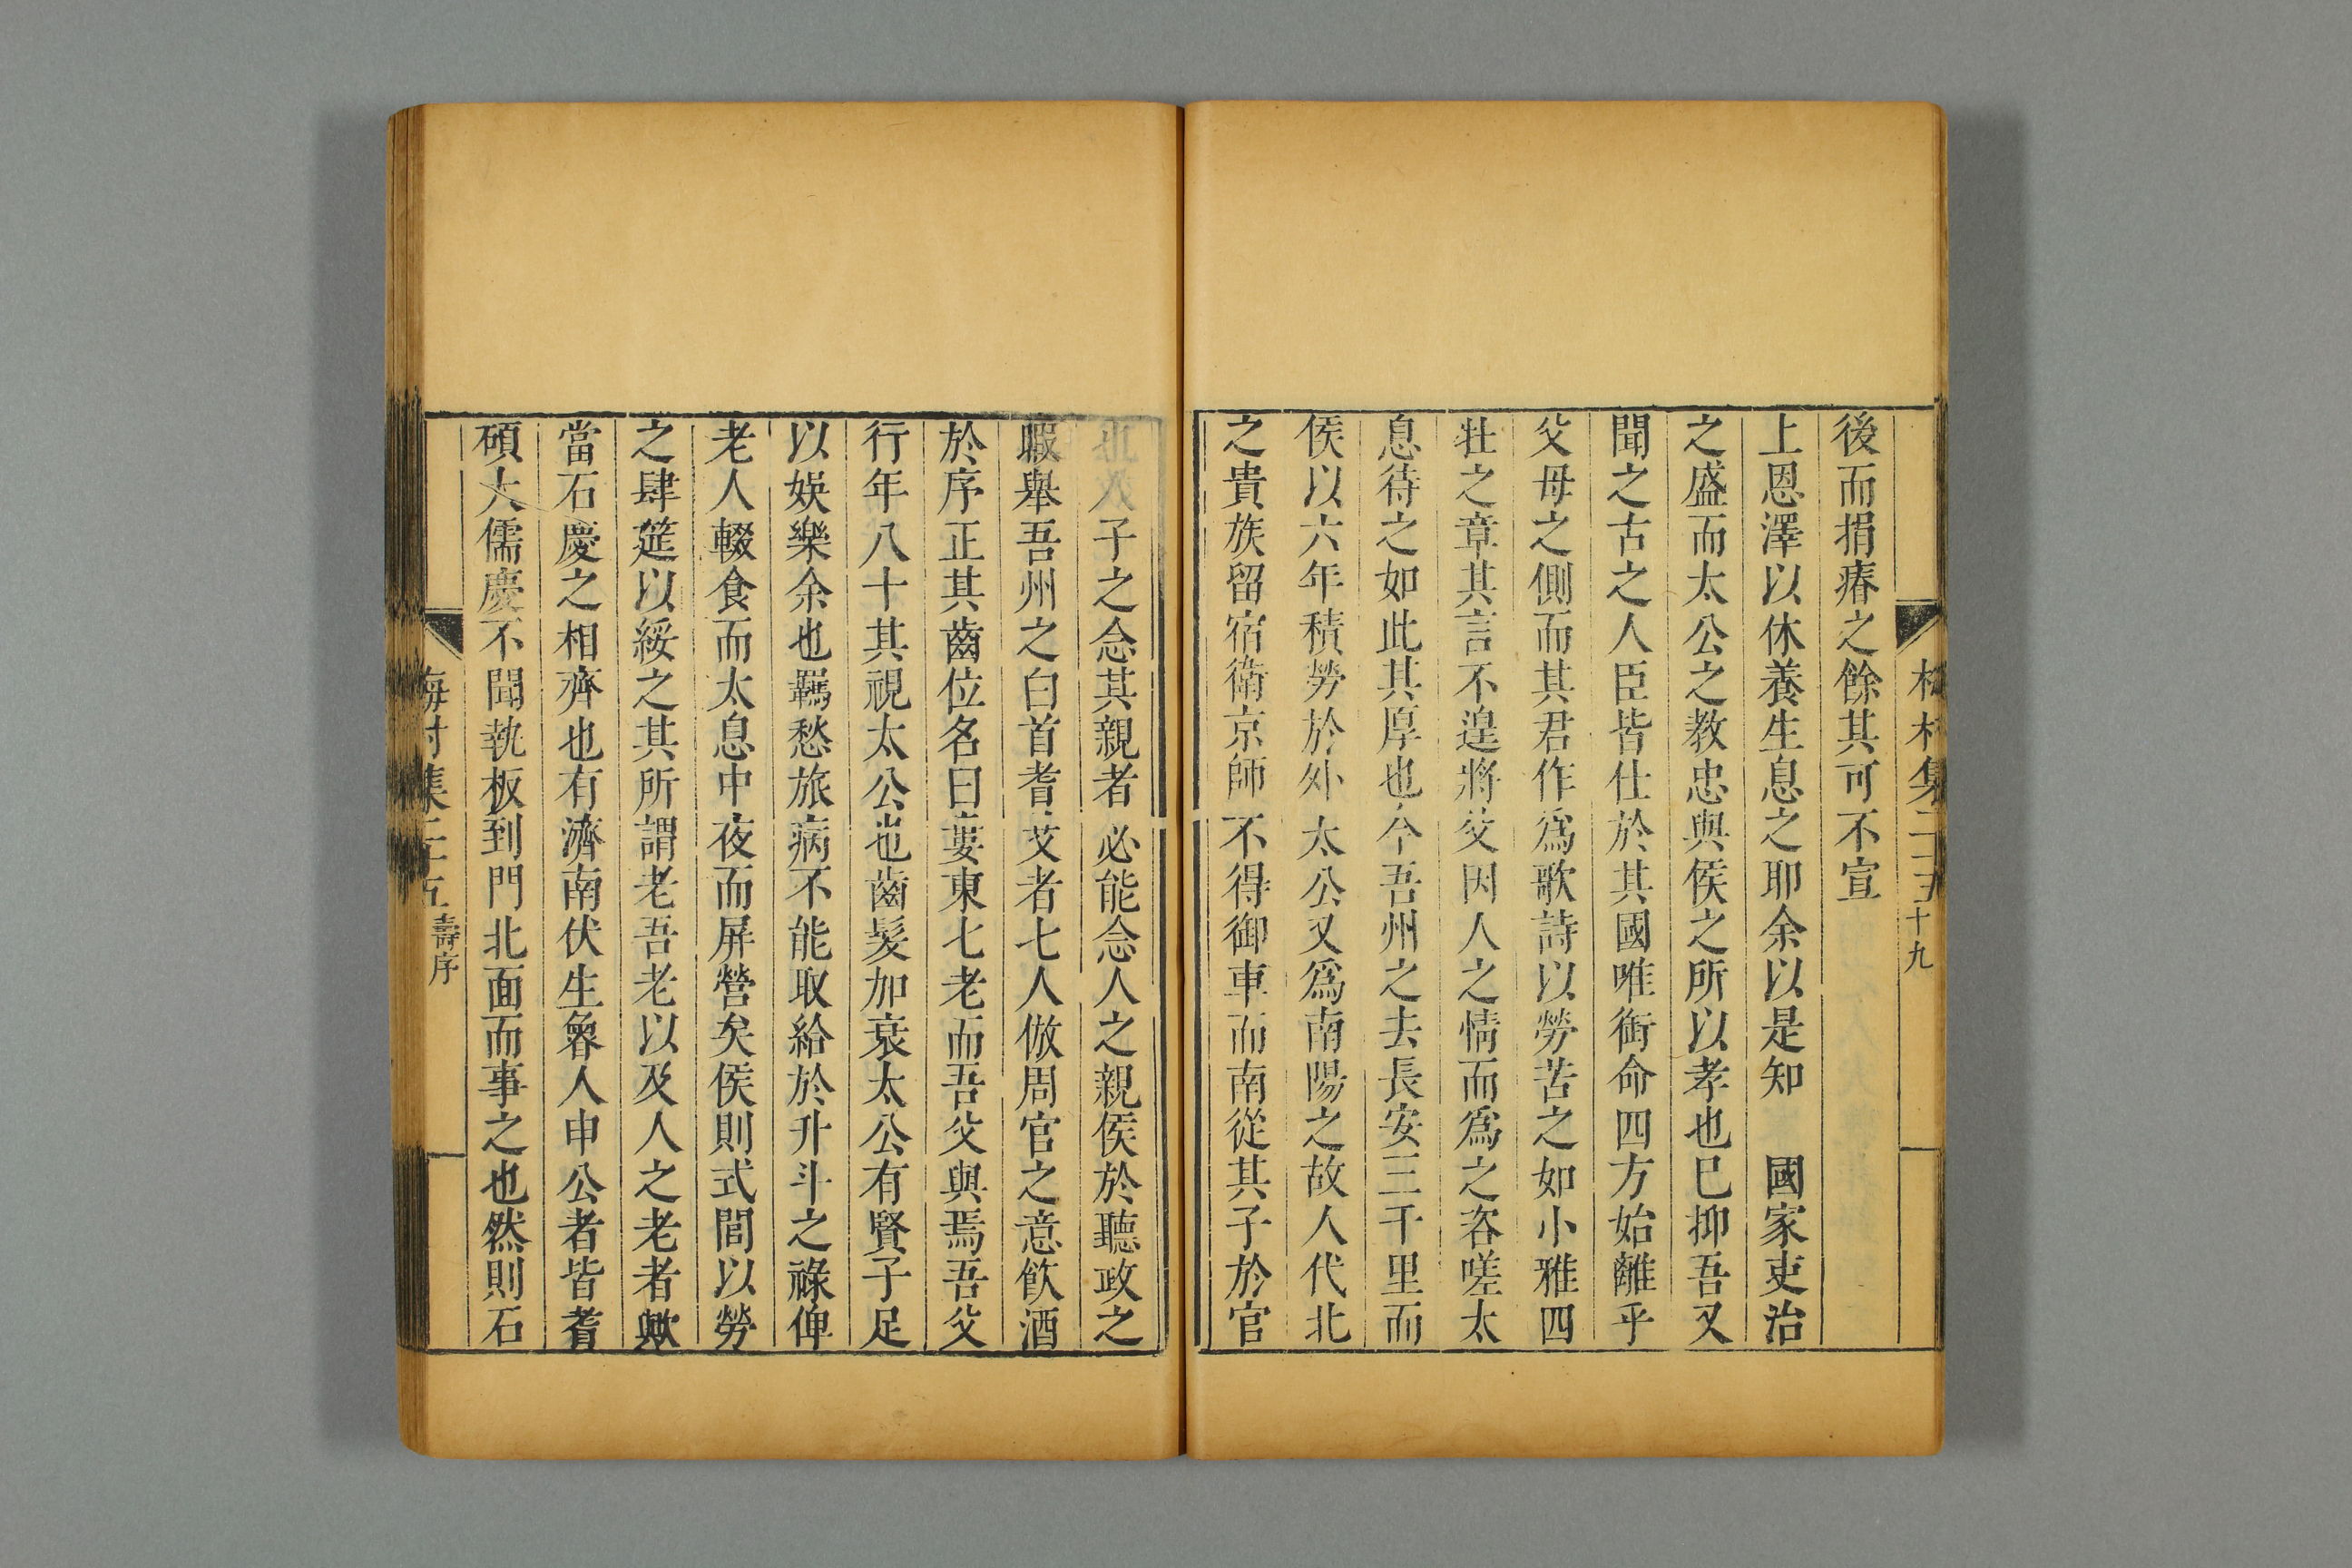 梅村集二十五 十九
後而捐瘠之餘其可不宣
上恩澤以休養生息之耶余以是知 國家吏治
之盛而太公之教忠與侯之所以孝也已抑吾又
聞之古之人臣皆仕於其國唯銜命四方始離乎
父母之側而其君作爲歌詩以勞苦之如小雅四
牡之章其言不遑將父因人之情而爲之咨嗟太
息待之如此其厚也今吾州之去長安三千里而
侯以六年積勞於外太公又爲南陽之故人代北
之貴族留宿衛京師不得御車而南從其子於官
子之念其親者必能念人之親侯於聽政之
暇舉吾州之白首耆艾者七人倣周官之意飲酒
於序正其齒位名曰婁東七老而吾父與焉吾父
行年八十其視太公也齒髮加衰太公有賢子足
以娛樂余也羈愁旅病不能取給於升斗之祿俾
老人輟食而太息中夜而屏營矣侯則式閭以勞
之肆筵以綏之其所謂老吾老以及人之老者歟
當石慶之相齊也有濟南伏生魯人申公者皆耆
碩大儒慶不聞執板到門北面而事之也然則石
梅村集二十五 壽序